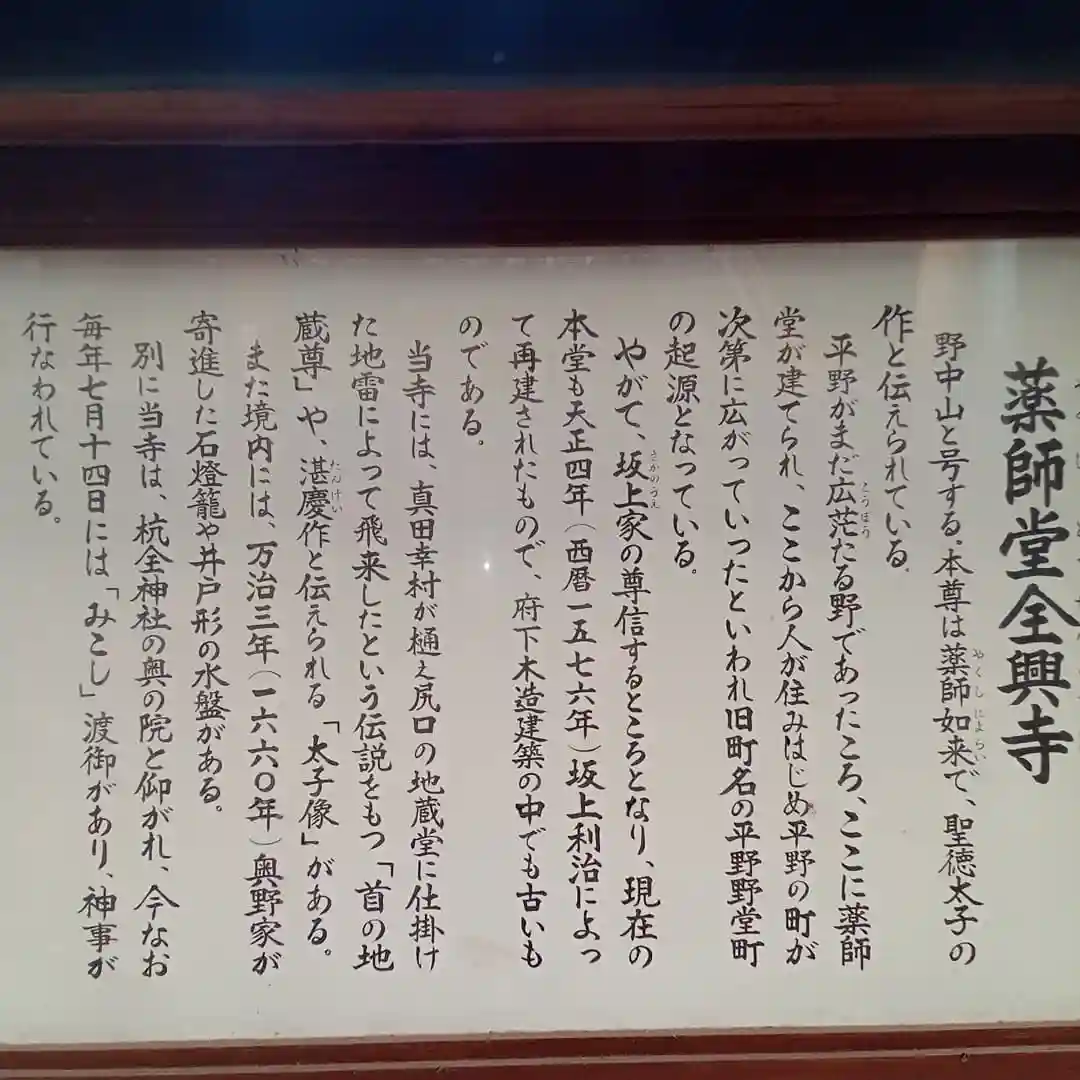 薬師堂全興寺
野中山と号する。本尊は薬師如来で、聖徳太子の
作と伝えられている。
平野がまだ広茫たる野であったころ、ここに薬師
堂が建てられ、ここから人が住みはじめ平野の町が
次第に広がっていったといわれ旧町名の平野野堂町
の起源となっている。
やがて、坂上家の尊信するところとなり、現在の
本堂も天正四年(西暦一五七六年)坂上利治によっ
て再建されたもので、府下木造建築の中でも古いも
のである。
当寺には、真田幸村が樋ぇ尻口の地蔵堂に仕掛け
た地雷によって飛来したという伝説をもつ「首の地
蔵尊」や、湛慶作と伝えられる「太子像」がある。
また境内には、万治三年(一六六〇年)奥野家が
寄進した石燈籠や井戸形の水盤がある。
別に当寺は、杭全神社の奥の院と仰がれ、今なお
毎年七月十四日には「みこし」渡御があり、神事が
行なわれている。